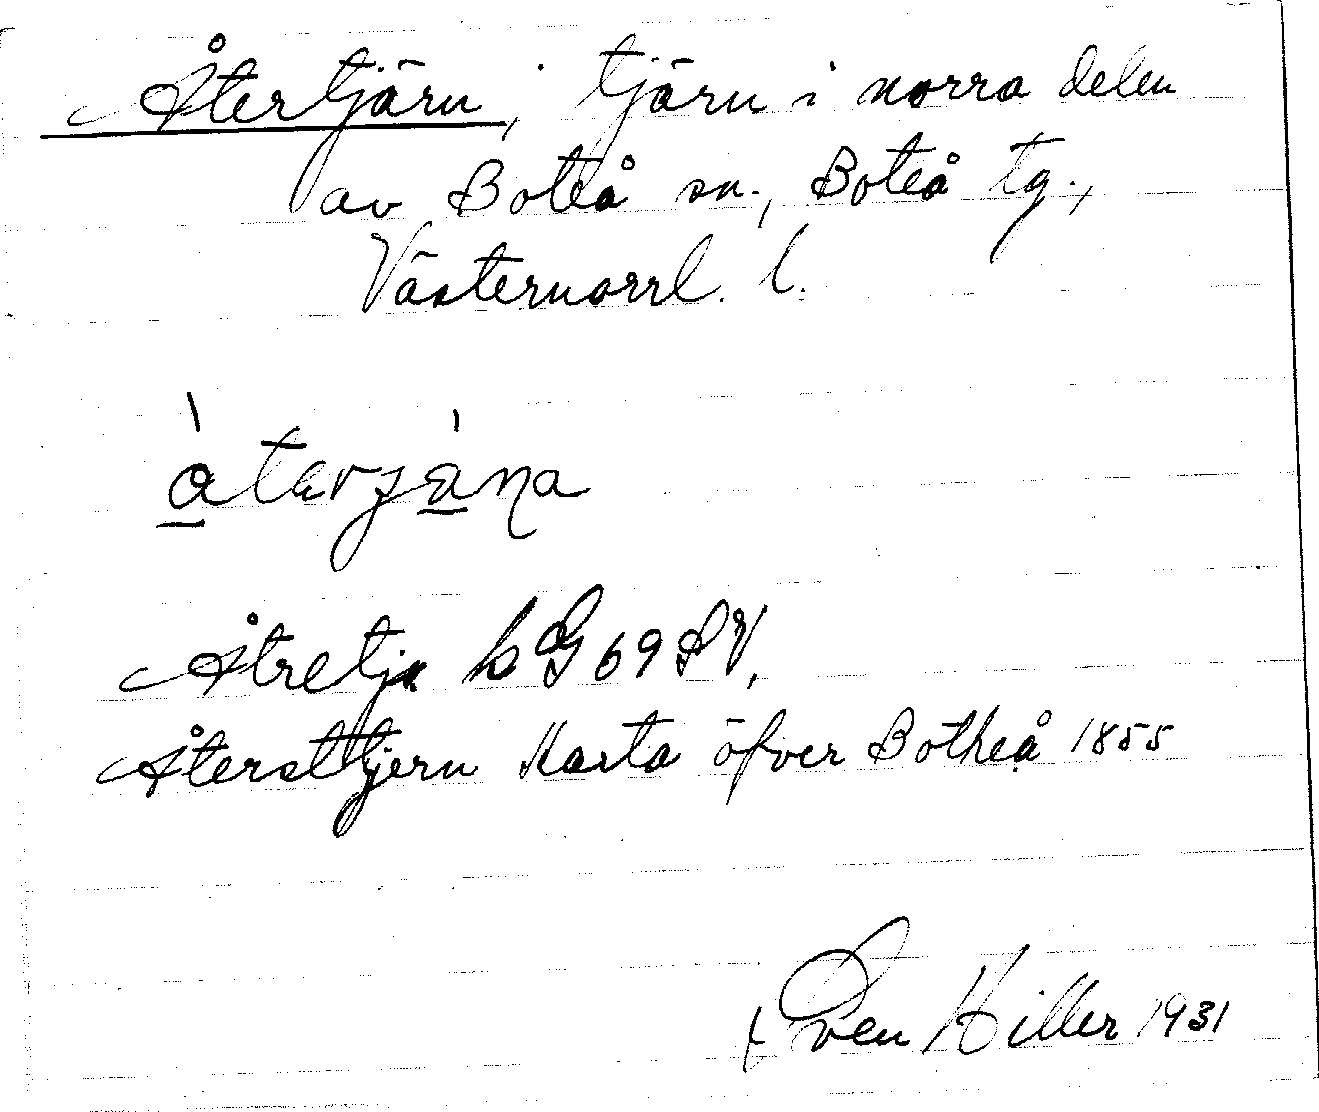 Återtjärn, tjärn i norra delen
av Boteå sn., Boteå tg.,
Västernorrl. l.
a̲̍tarja̲̍na
Åtretjn GG 69 SV,
Återsttjern Karta öfver Botheå 1855
Sven Hiller 1931